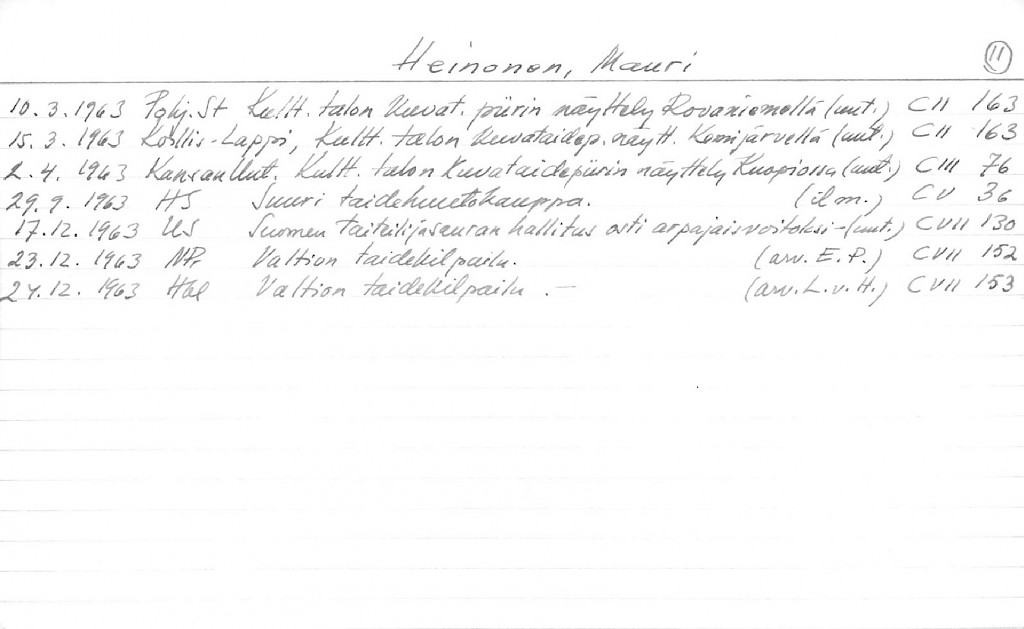 Heinonen, Mauri 11
10.3.1963 Pohj. St Kultt. talon kuvat. piirin näyttely Rovaniemellä (uut.) CII 163
15.3.1963 Koillis-Lappi, Kultt. talon kuvataidep. näytt. Kemijärvellä (uut.) CII 163
2.4.1963 Kansan Uut. Kultt. talon kuvataidepiirin näyttely Kuopiossa (uut.) CIII 76
29.9.1963 HS Suuri taidehuutokauppa. (ilm.) CV 36
17.12.1963 US Suomen taiteilijaseuran hallitus osti arpajaisvoitoksi - (uut.) CVII 130
23.12.1963 MP. Valtion taidekilpailu. (arv. E.P.) CVII 152
24.12.1963 Hbl Valtion taidekilpailu. — (arv. L.v.H.) CVII 153